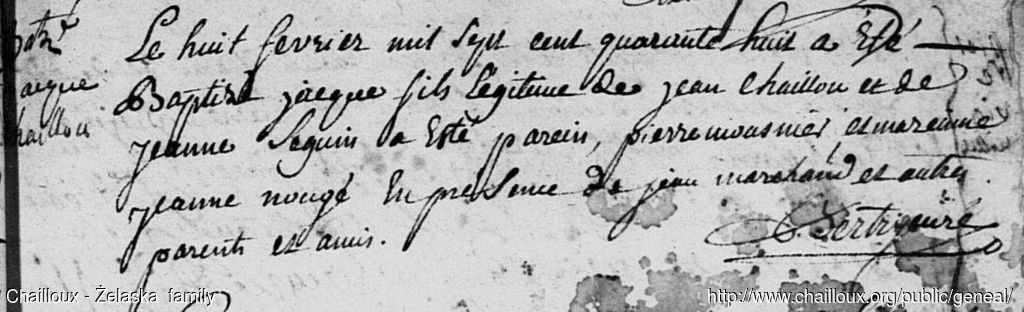 Bat.
jacque
chaillou
Le huit fevrier mil sept cent quarante huit a Esté
Baptizé jacque fils Légitime de jean Chaillou et de
jeanne Seguin a Esté parein, pierre mousnier et mareinne
jeanne nougé En presence de jean marchand et autres
parents et amis.
curé
Chailloux - Żelaska family
http://www.chailloux.org/public/geneal/